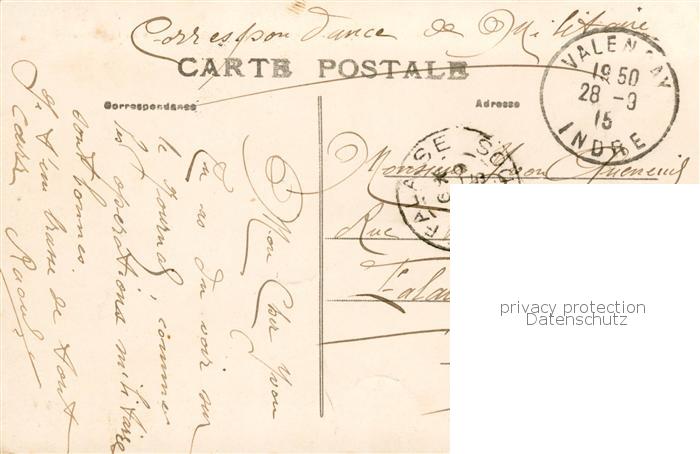 Correspondance de Militaire
CARTE POSTALE
Correspondance
Adresse
VALENÇAY
19 50
28 - 9
15
INDRE
FALAISE
Monsieur Yvon
Rue
Falai
Mon Cher Yvon
Tu as du voir sur
le journal, comme
les opérations militaire
sont bonnes.
Je t'embrasse de tout
Cœur Raoul
privacy protection
Datenschutz